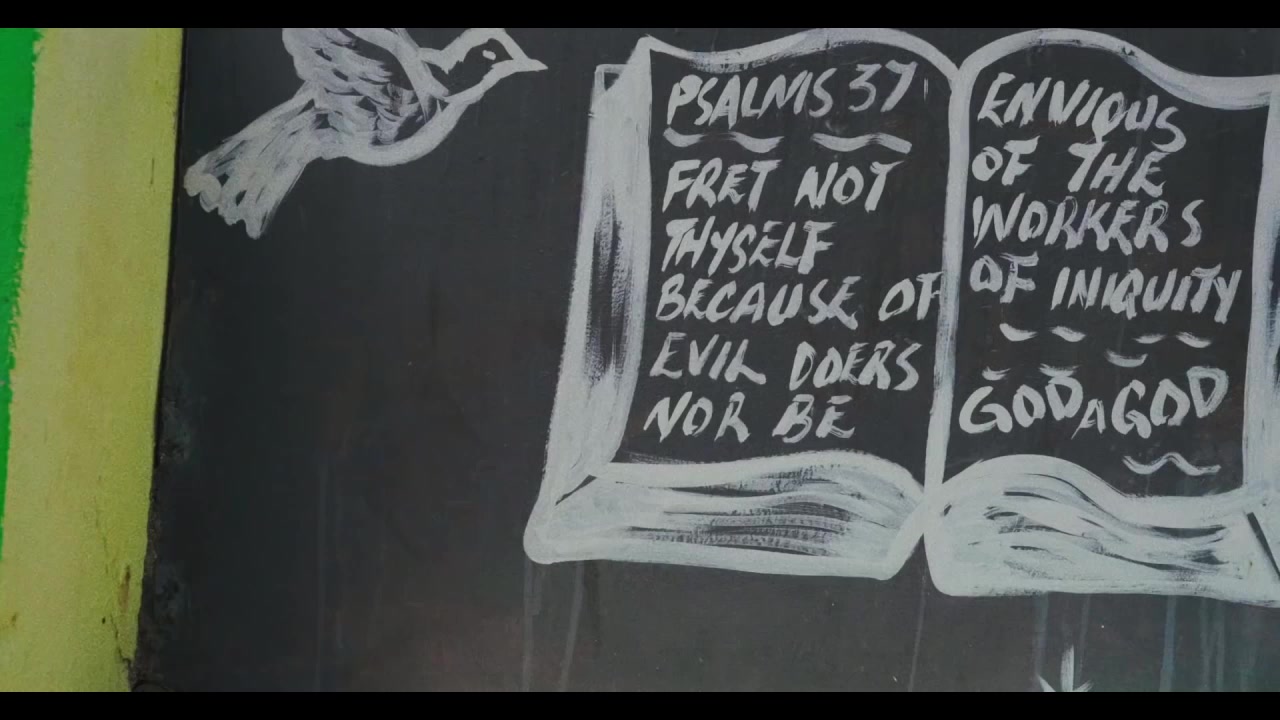 PSALMS 37
FRET NOT
THYSELF
BECAUSE OF
EVIL DOERS
NOR BE
ENVIOUS
OF THE
WORKERS
OF INIQUITY
GOD A GOD